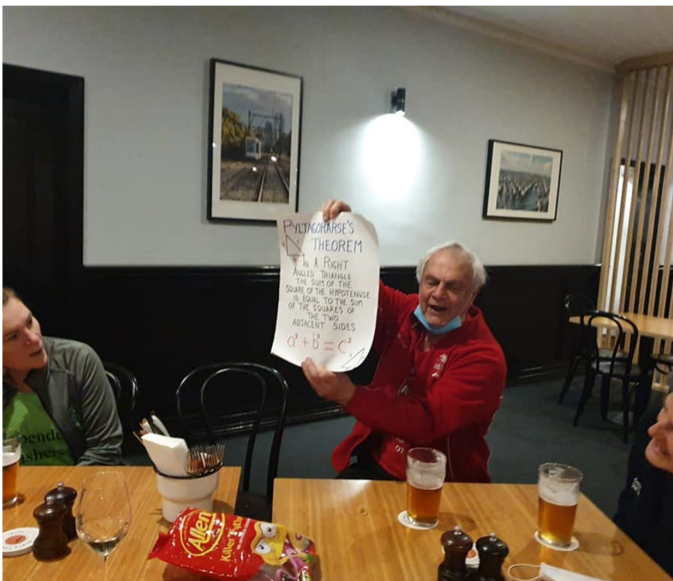 PYLTAGOHARSE'S
THEOREM
IN A RIGHT
ANGLED TRIANGLE
THE SUM OF THE
SQUARE OF THE HYPOTENUSE
IS EQUAL TO THE SUM
OF THE SQUARES OF
THE TWO
ADJACENT SIDES
a² + b² = c²
Allen's
Killer Pythons